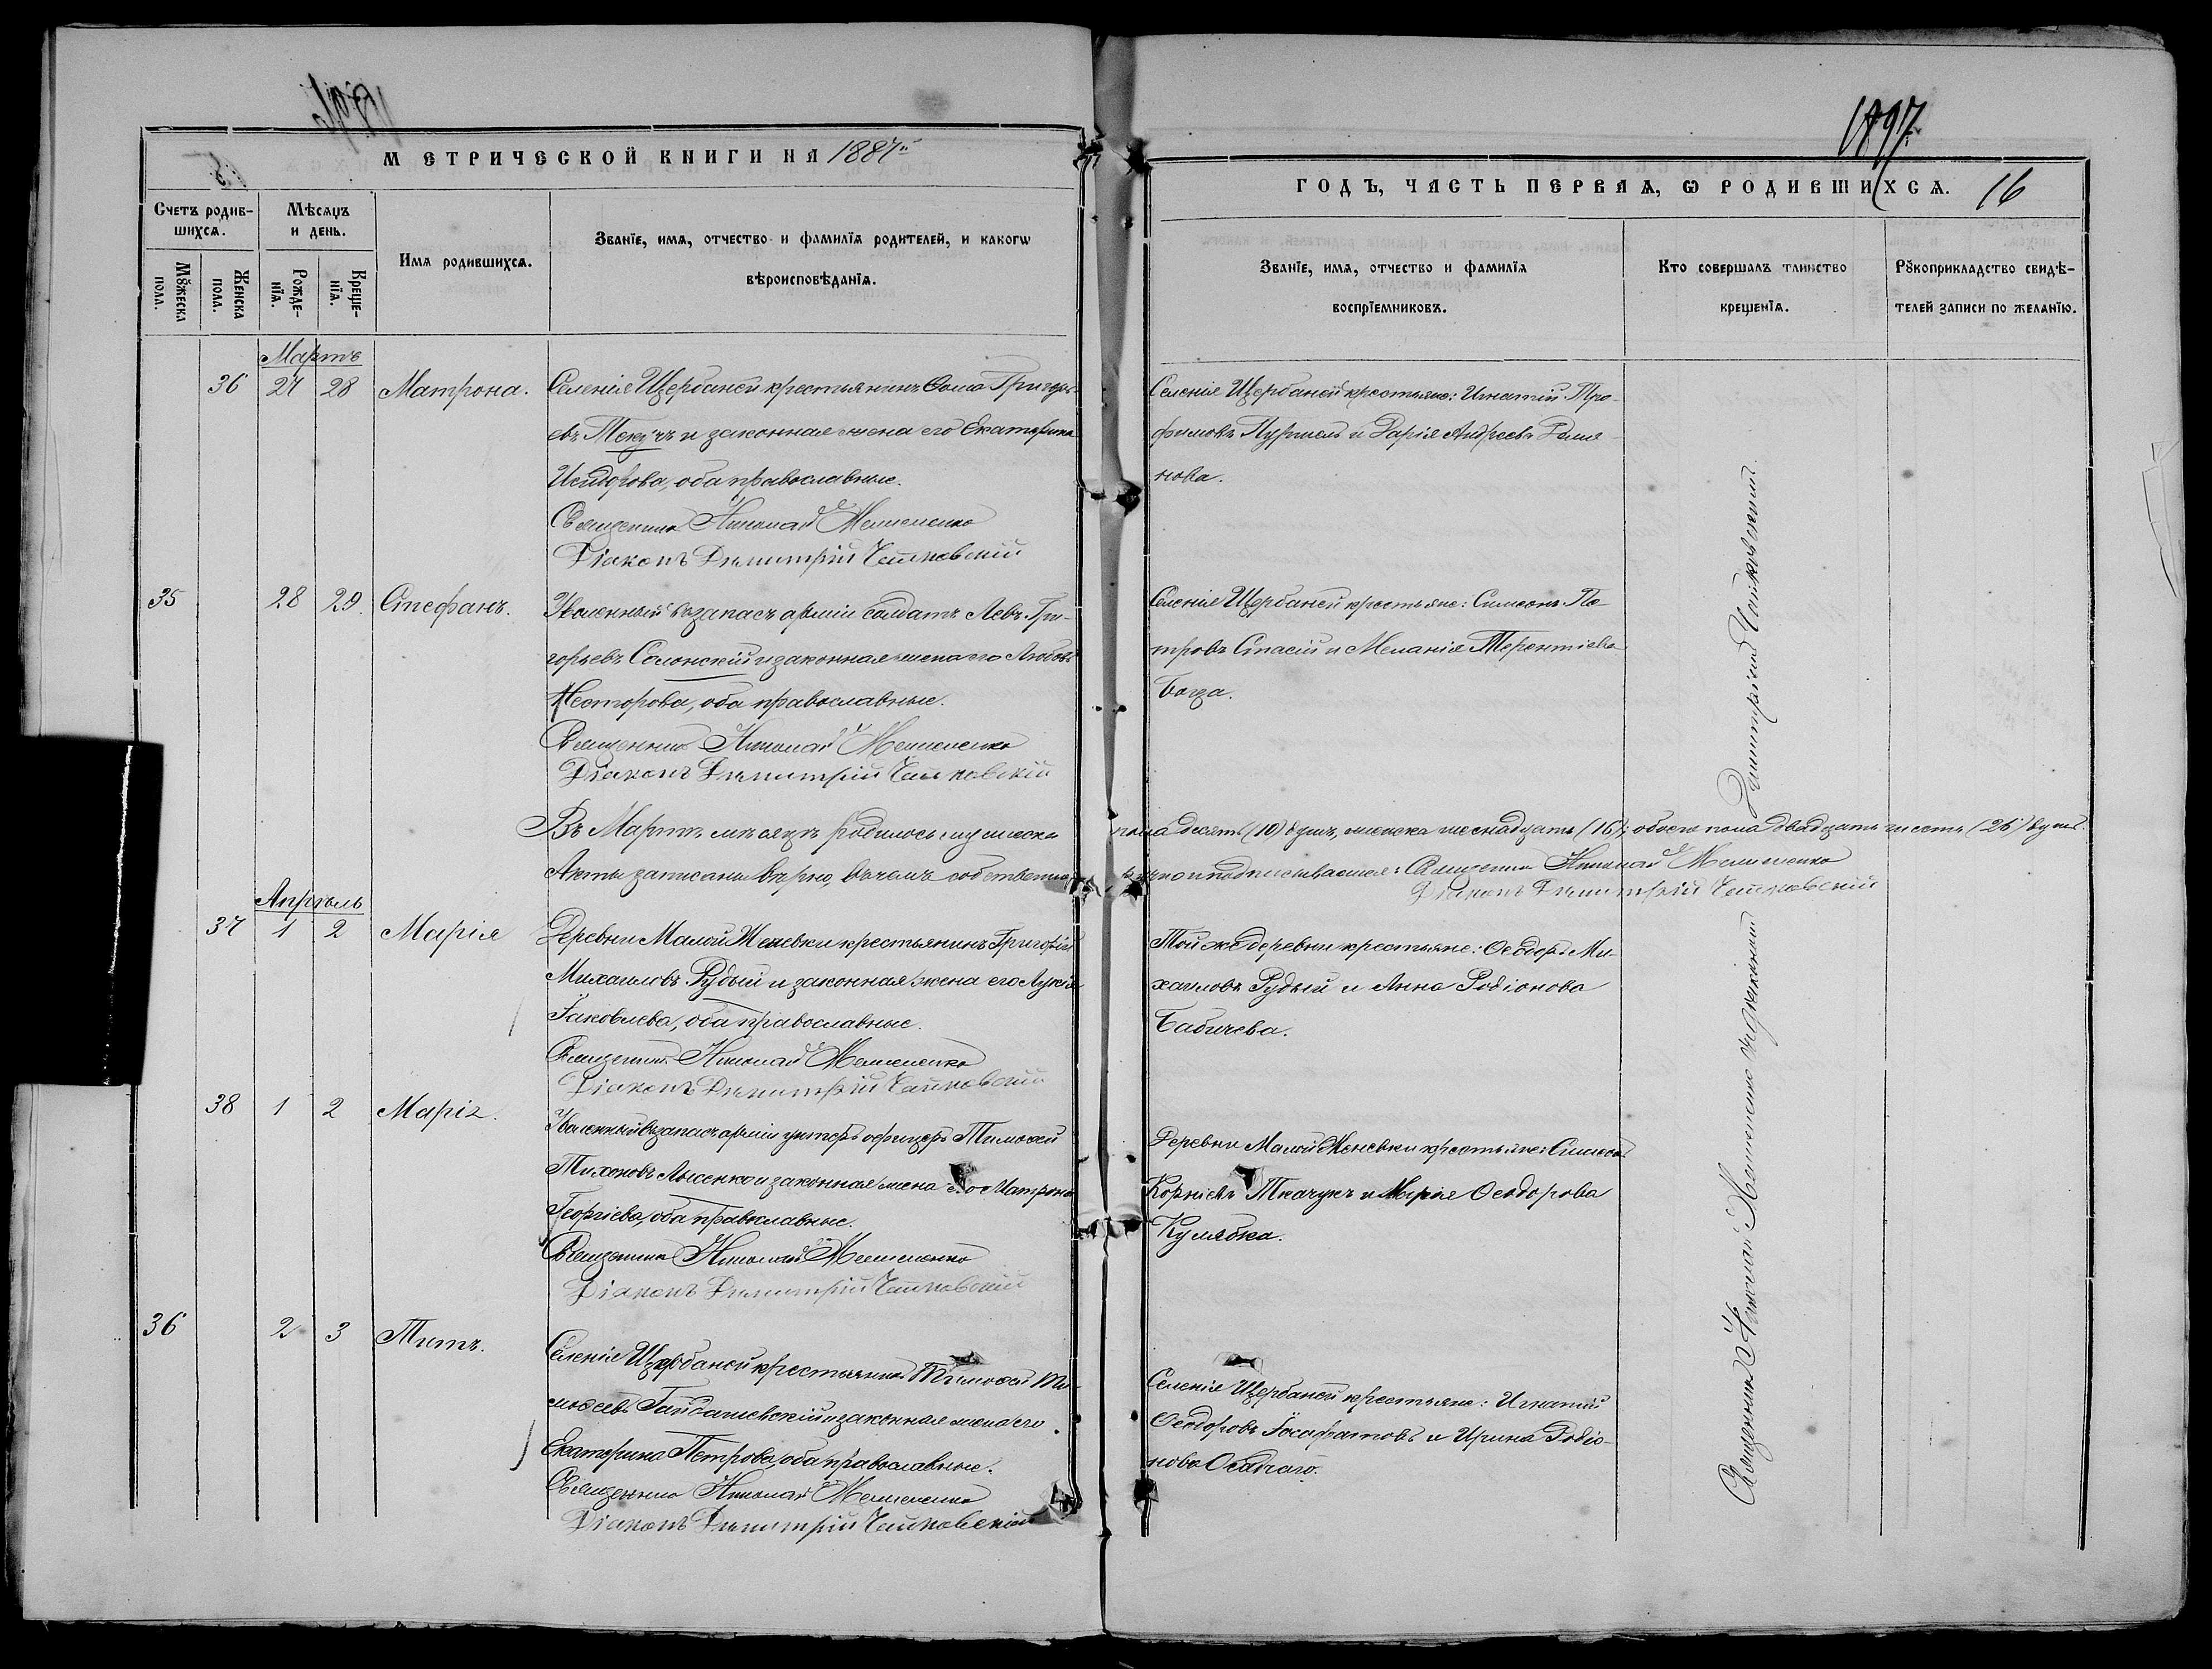 1897
МЕТРИЧЕСКОЙ КНИГИ НА 1887й
ГОДЪ, ЧАСТЬ ПЕРВАЯ, Ѡ РОДИВШИХСѦ. 16
Счетъ родив-
шихсѧ.
Мѣсяцъ
и день.
Имѧ родившихсѧ.
Званїе, имѧ, отчество и фамилїѧ родителей, и какогѡ
вѣроисповѣданїѧ.
Мꙋжеска
пола.
Женска
пола.
Рожде-
нїѧ.
Креще-
нїѧ.
Званїе, имѧ, отчество и фамилїѧ
воспрїемниковъ.
Кто совершалъ таинство
крещенїѧ.
Рꙋкоприкладство свидѣ-
телей записи по желанїю.
Мартъ
36 27 28 Матрона.
Селенія Щербаней крестьянинъ Ѳома Григорь-
евъ и законная жена его Екатерина
Исидорова, оба православные.
Священникъ Николай
Діаконъ Димитрій Чайковскій
Селенія Щербаней крестьяне: Игнатій Тро-
фимовъ и Дарія Андреева Рома-
нова.
35 28 29. Стефанъ.
Уволенный въ запасъ арміи солдатъ Левъ Гри-
горьевъ Солонскій и законная жена его Любовь
Несторова, оба православные.
Священникъ Николай
Діаконъ Димитрій Чайковскій
Селенія Щербаней крестьяне: Симеонъ Пе-
тровъ Стасій и Меланія Терентіева
Въ Мартѣ мѣсяцѣ родилось мужеска пола десять (10) душъ, женска шеснадцать (16); обоего пола двадцать шесть (26) душъ.
Акты записаны вѣрно, въ чемъ собственно ручно и подписываемся: Священникъ Николай
Діаконъ Димитрій Чайковскій
Апрѣль
37 1 2 Марія
Деревни Малой Женевки крестьянинъ Григорій
Михаиловъ Рудый и законная жена его Лукія
Іаковлева, оба православные.
Священникъ Николай
Діаконъ Димитрій Чайковскій
Той же деревни крестьяне: Ѳеодоръ Ми-
хаиловъ Рудый и Анна Родіонова
Бабичева.
38 1 2 Марія.
Уволенный въ запасъ арміи унтеръ офицеръ Тимоѳей
Тихоновъ Лысенко и законная жена его Матрона
Георгіева, оба православные.
Священникъ Николай
Діаконъ Димитрій Чайковскій
Деревни Малой Женевки крестьяне: Симеонъ
Корніевъ Ткачукъ и Марія Ѳеодорова
Кулябка.
36 2 3 Титъ.
Селенія Щербаней крестьянинъ Тимоѳей Ти-
моѳеевъ и законная жена его
Екатерина Петрова, оба православные.
Священникъ Николай
Діаконъ Димитрій Чайковскій
Селенія Щербаней крестьяне: Игнатій
Ѳеодоровъ Іосафатовъ и Ирина Родіо-
нова
Священникъ Николай съ діакономъ Димитріемъ Чайковскимъ.